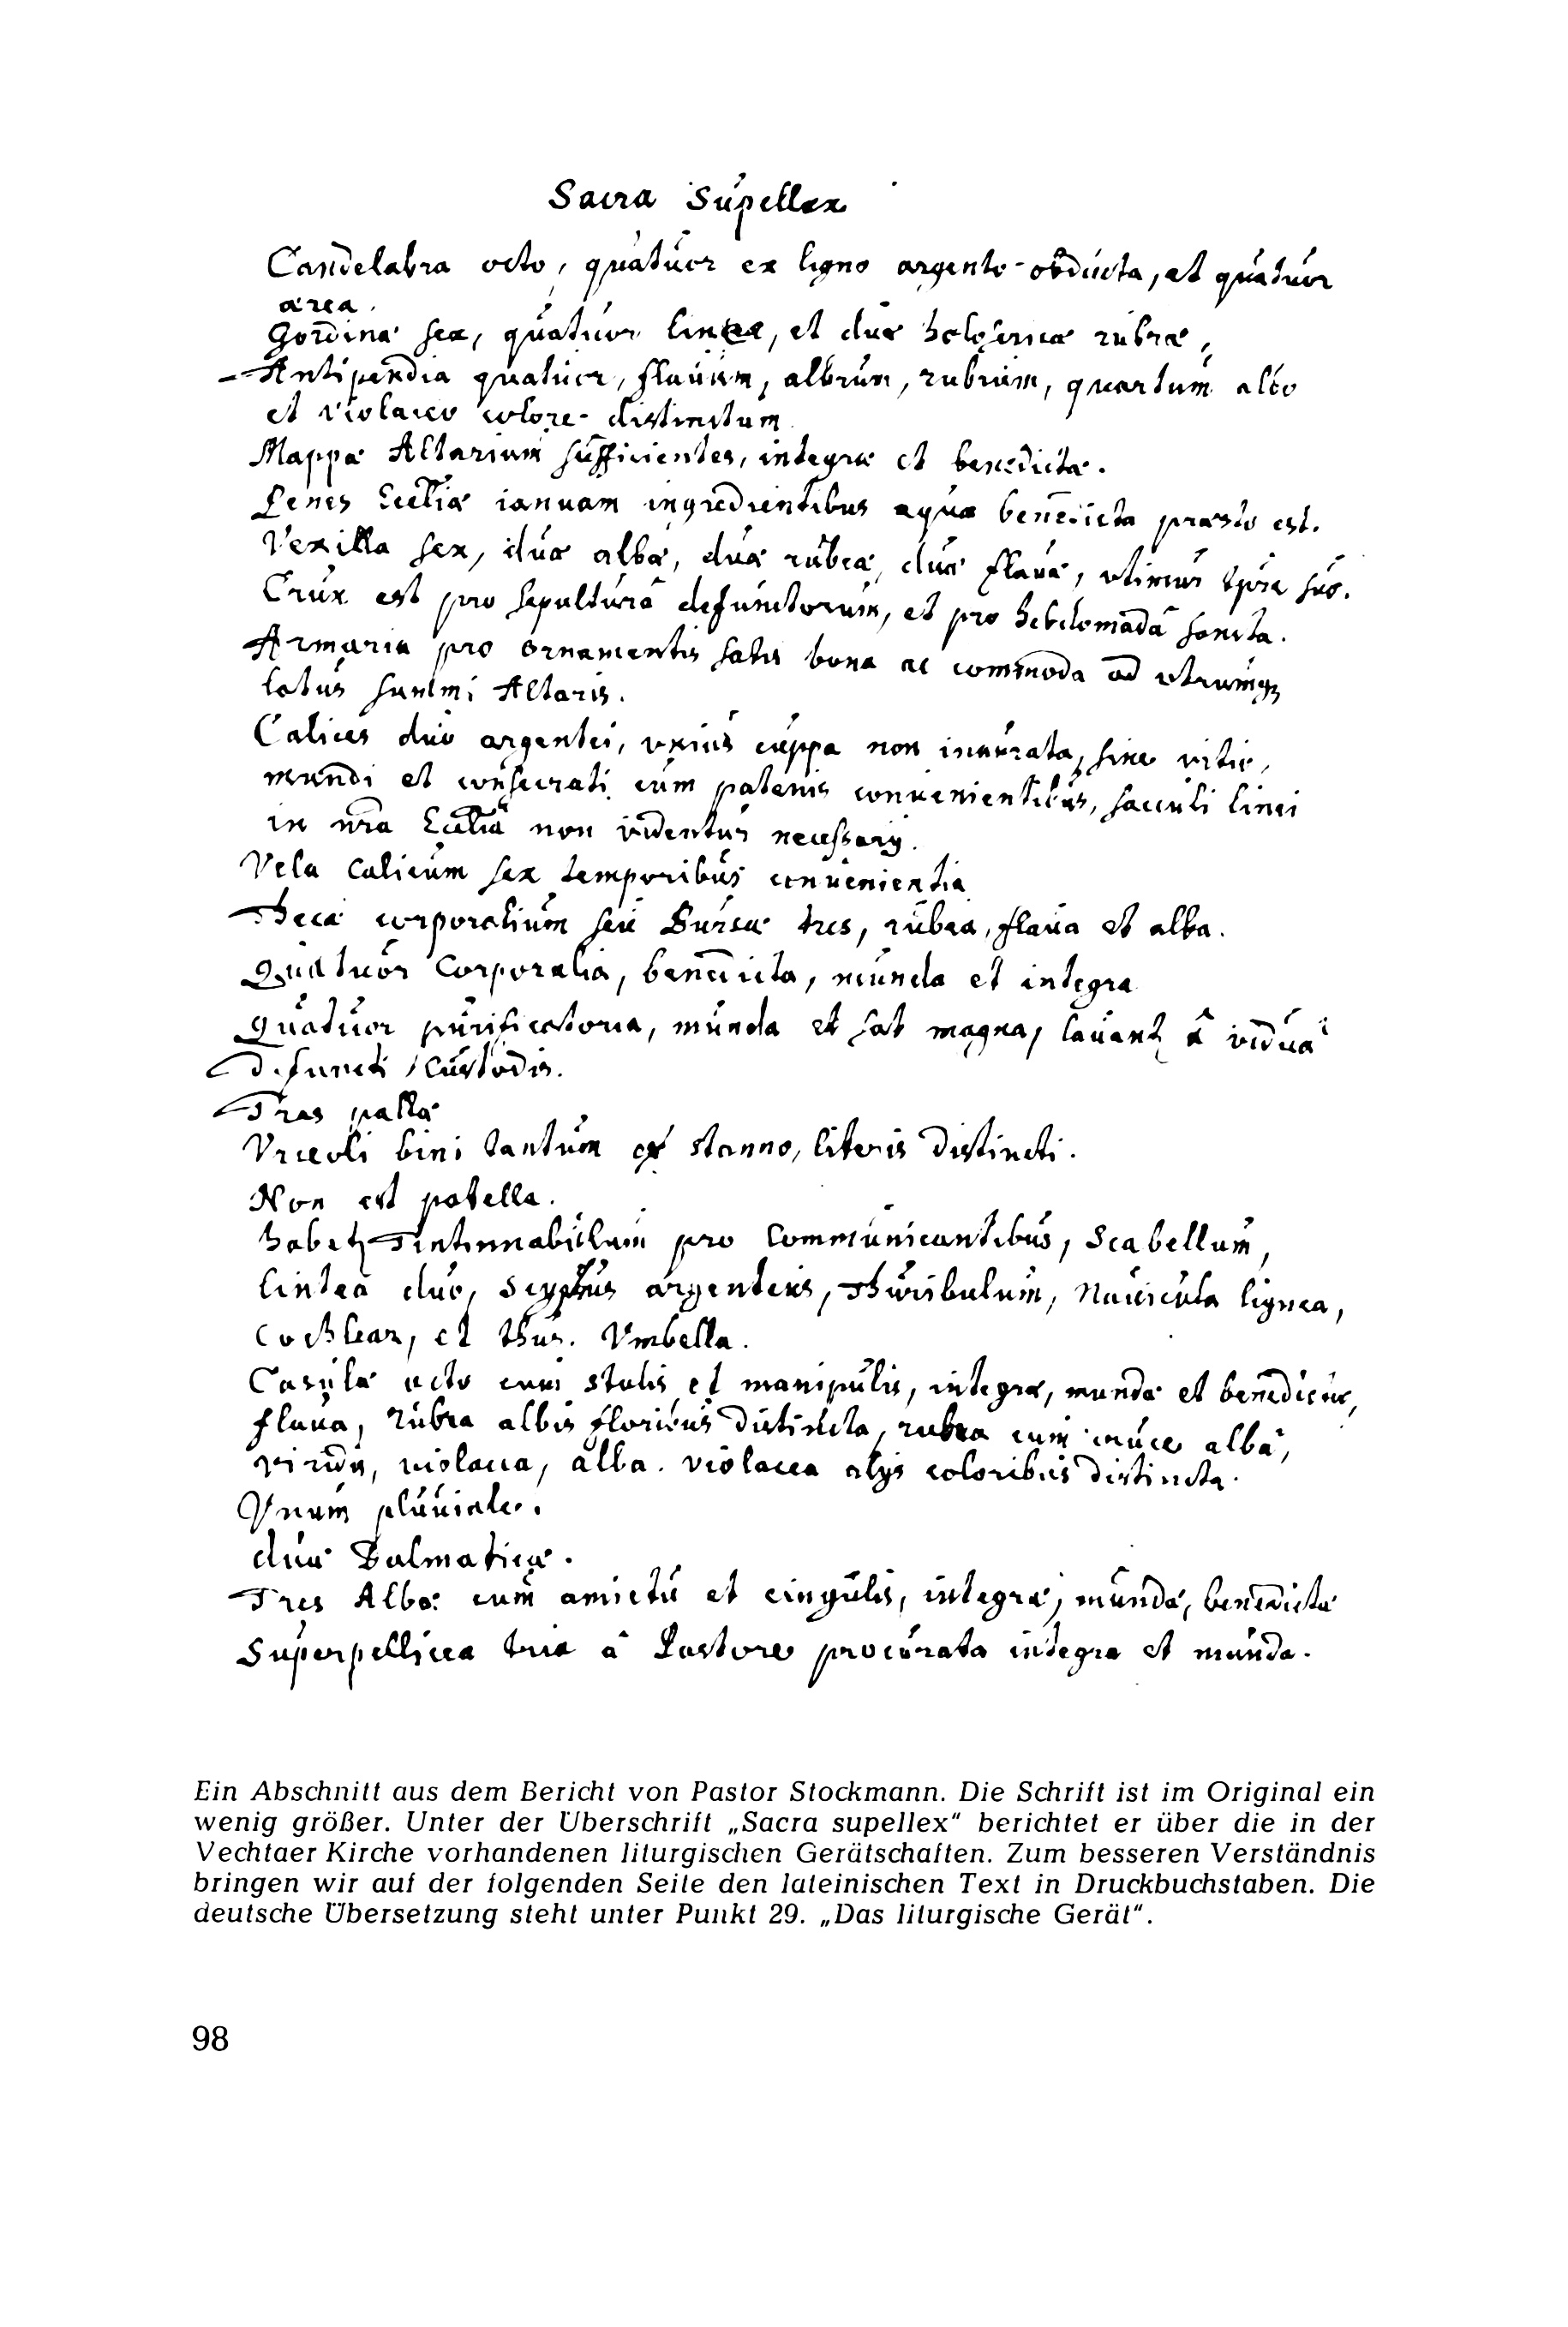 Sacra Supellex
Candelabra octo, quatuor ex ligno argento obducta, et quatuor
ærea.
Gordinæ sex, quatuor lineæ, et duæ holosericæ rubræ,
Antipendia quatuor, flauum, album, rubrum, quartum albo
et violaceo colore distinctum
Mappæ Altarium sufficientes, integræ et benedictæ.
Penes Eccliæ ianuam ingredientibus aqua benedicta præsto est.
Vexilla sex, duæ albæ, duæ rubeæ, duæ flauæ, vtimur suo.
Crux est pro sepulturâ defunctorum, et pro hebdomadâ sancta.
Armaria pro ornamentis satis bona ac commoda ad vtrumq
latus summi Altaris.
Calices duo argentei, vnius cuppa non inaurata, sine vitio,
mundi et consecrati cum patenis conuenientibus, sacculi linei
in nra Eccliâ non videntur necessarij.
Vela calicum sex temporibus conuenientia
Thecæ corporalium seu Bursæ tres, rubea, flaua et alba.
Quatuor Corporalia, benedicta, munda et integra
Quatuor purificatoria, munda et sat magna, lauant à viduâ
Defuncti Custodis.
Tres pallæ
Vrceoli bini tantum ex stanno, literis distincti.
Non est patella.
habet Tintinnabulum pro Communicantibus, Scabellum,
lintea duo, Scyphus argenteus, Thuribulum, Nauicula lignea,
Cochlear, et thus. Vmbella.
Casulæ octo cum stolis et manipulis, integræ, mundæ et benedictæ,
flaua, rubea albis floribus distincta, rubea cum cruce albâ,
viridis, violacea, alba. violacea alijs coloribus distincta.
Vnum pluuiale.
duæ Dalmaticæ.
Tres Albæ cum amictu et cingulis, integræ, mundæ, benedictæ
Superpellicea tria â Pastore procurata integra et munda.
Ein Abschnitt aus dem Bericht von Pastor Stockmann. Die Schrift ist im Original ein
wenig größer. Unter der Überschrift „Sacra supellex“ berichtet er über die in der
Vechtaer Kirche vorhandenen liturgischen Gerätschaften. Zum besseren Verständnis
bringen wir auf der folgenden Seite den lateinischen Text in Druckbuchstaben. Die
deutsche Übersetzung steht unter Punkt 29. „Das liturgische Gerät“.
98